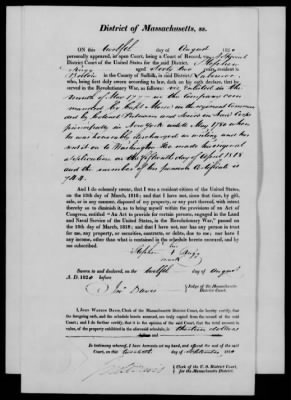 District of Massachusetts, ss.
ON this twelfth day of August 1820
personally appeared, in open Court, being a Court of Record,
District Court of the United States for the said District, Stephen
aged sixty two years, resident in
Boston in the County of Suffolk, in said District
who, being first duly sworn according to law, doth on his oath declare, that he
served in the Revolutionary War, as follows: he enlisted in the
month of in the Company com
manded by Capt in the regiment comman
ded by Colonel Putnam and served in
in until May 1780 when
he was honorably discharged in writing and has
sent it on to Washington He made his original
application on the day of April 1818
and the number of his pension Certificate is
And I do solemnly swear, that I was a resident citizen of the United States,
on the 18th day of March, 1818; and that I have not, since that time, by gift,
sale, or in any manner, disposed of my property, or any part thereof, with intent
thereby so to diminish it, as to bring myself within the provisions of an Act of
Congress, entitled "An Act to provide for certain persons, engaged in the Land
and Naval Service of the United States, in the Revolutionary War," passed on
the 18th day of March, 1818; and that I have not, nor has any person in trust
for me, any property, or securities, contracts, or debts, due to me; nor have I
any income, other than what is contained in the schedule hereto annexed, and by
me subscribed.
Stephen his
mark
Sworn to and declared, on the twelfth day of August
A. D. 1820 before
Jno Davis Judge of the Massachusetts
District Court.
I, JOHN WATSON DAVIS, Clerk of the Massachusetts District Court, do hereby certify, that
the foregoing oath, and the schedule hereto annexed, are truly copied from the record of the said
Court; and I do further certify, that it is the opinion of the said Court, that the total amount in
value, of the property exhibited in the aforesaid schedule, is thirteen dollars
In testimony whereof, I have hereunto set my hand, and affixed the seal of the said
Court, on this day of September 1820
Clerk of the U. S. District Court
for the Massachusetts District.